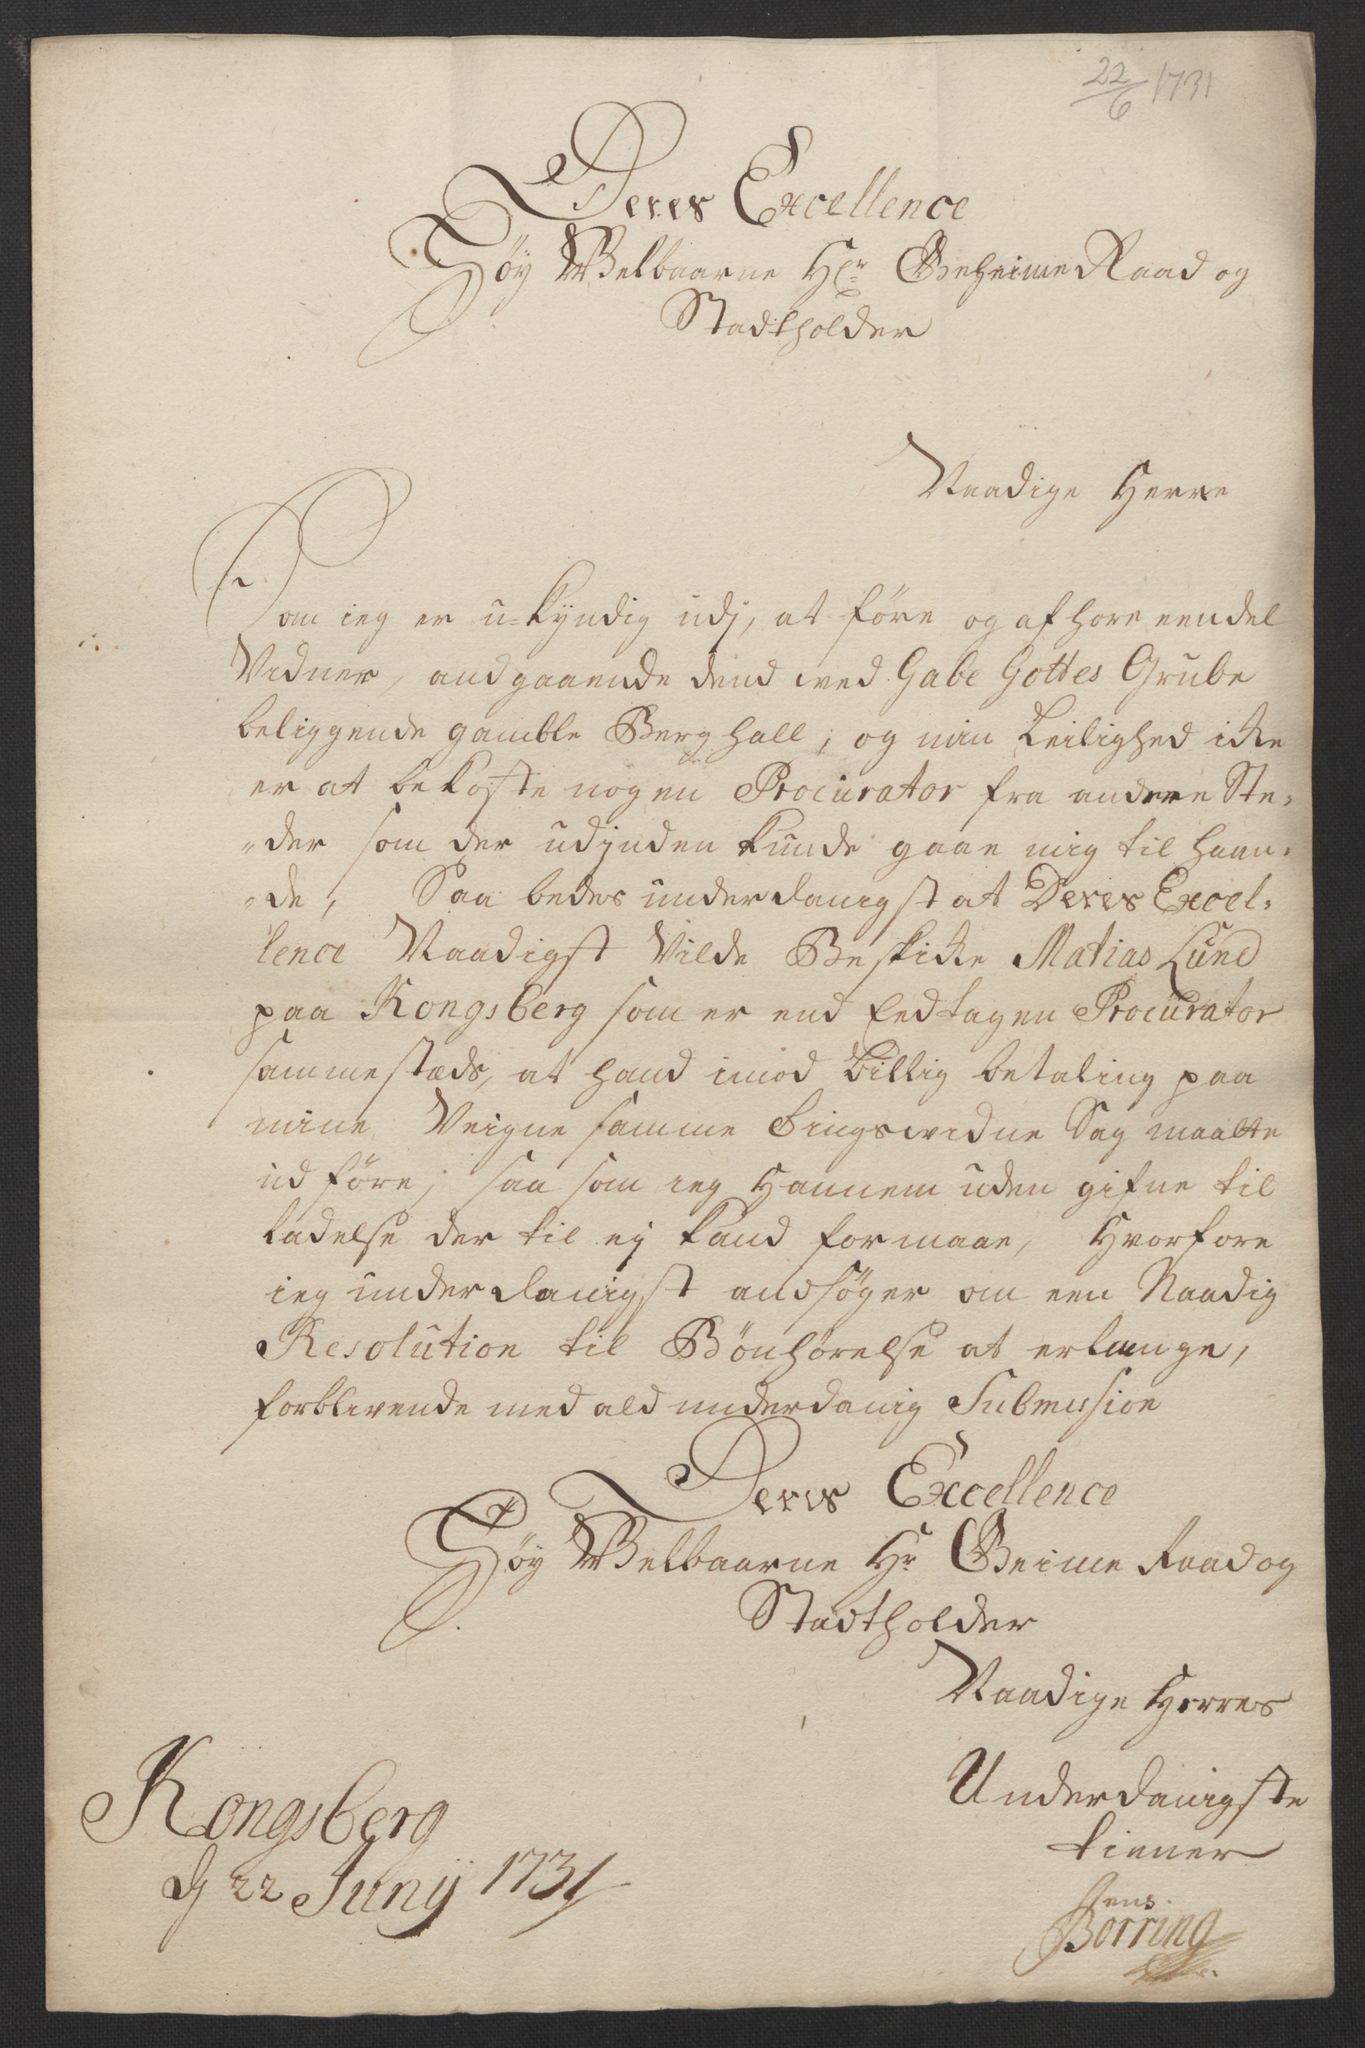 22/6 1731
Deres Excellence
Höy Welbaarne Hr. Geheime Raad og
Stadtholder
Naadige Herre
Som ieg er u-kyndig udj, at före og afhöre een deel
Vidner, andgaaende dend wed Gabe Gottes Grube
beliggende gamble Berg hall, og min Leilighed icke
er at bekoste nogen Procurator fra andre Ste-
-der som der udjnden kunde gaae mig til haan-
-de, Saa bedes underdanigst at Deres Excel-
lence Naadigst Vilde Beskicke Matias Lund
paa Kongsberg som er end Eedtagen Procurator
sammestæds, at hand imod billig betaling paa
mine Veigne samme Tingswidne Sag maatte
udföre, saa som ieg Hannem uden gifne til
ladelse der til ej kand formaae, Hvorfore
ieg underdanigst andsöger om een Naadig
Resolution til Bönhörelse at erlange,
forblivende med ald underdanig Submission
Deres Excellence
Höy Welbaarne Hr. Geime Raad og
Stadtholder
Naadige Herres
Underdanigste
tienner
Jens
Borring
Kongsberg
d 22 Junij 1731